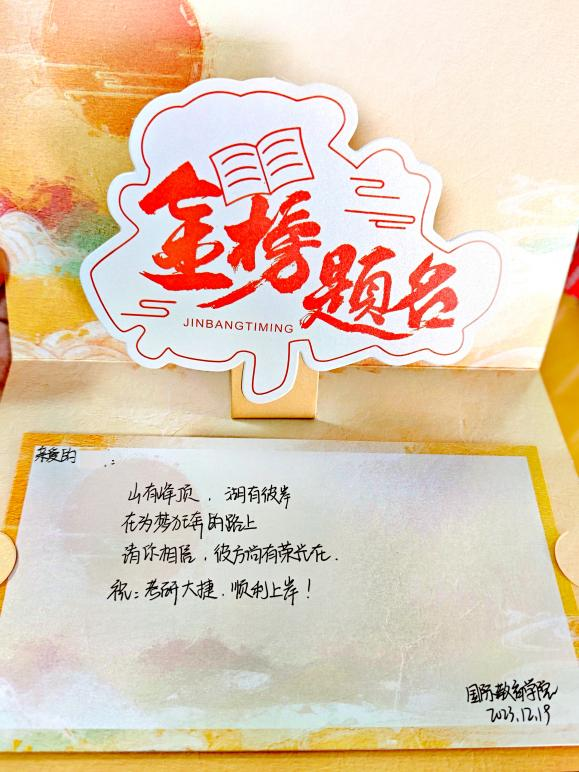 金榜题名
JINBANGTIMING
亲爱的 :
山有峰顶，湖有彼岸
在为梦狂奔的路上
请你相信，彼方尚有荣光在.
祝：考研大捷，顺利上岸！
国际教育学院
2023.12.19